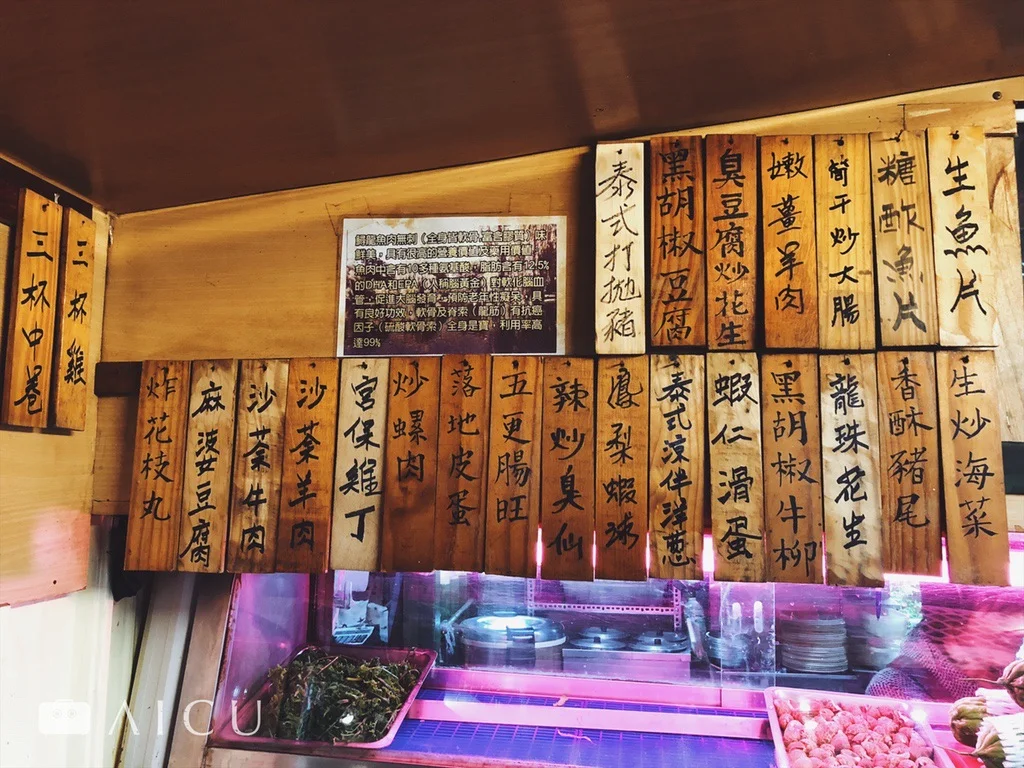 生魚片
糖酢漁片
筍干炒大腸
嫩薑羊肉
臭豆腐炒花生
黑胡椒豆腐
泰式打拋豬
生炒海菜
香酥豬尾
龍珠花生
黑胡椒牛柳
蝦仁滑蛋
泰式涼伴洋蔥
鳳梨蝦球
辣炒臭仙
五更腸旺
落地皮蛋
炒螺肉
宮保雞丁
沙茶羊肉
沙茶牛肉
麻婆豆腐
炸花枝丸
三杯雞
三杯中卷
鱘龍魚肉無刺（全身皆軟骨，富含膠質），味
鮮美，具有很高的營養價值及藥用價值，
魚肉中含有10多種氨基酸，脂肪含有12.5%
的DHA和EPA（人稱腦黃金）對軟化腦血
管，促進大腦發育，預防老年性癡呆，具
有良好功效，軟骨及脊索（龍筋）有抗癌
因子（硫酸軟骨素）全身是寶，利用率高
達99%
AICU